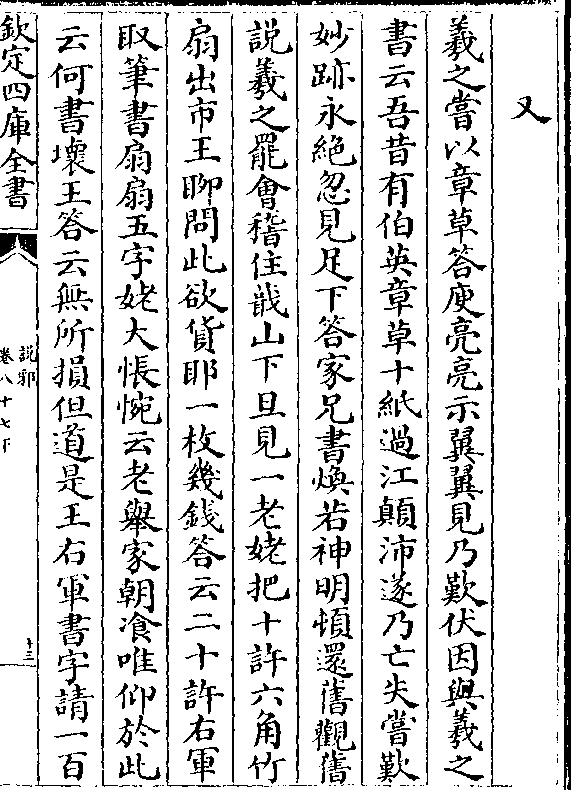 又
羲之嘗以章草答庾亮亮示翼翼見乃歎伏因與羲之
書云吾昔有伯英章草十紙過江顛沛遂乃亡失嘗歎
妙跡永絶忽見足下答家兄書煥若神明頓還舊觀舊
説羲之罷會稽住蕺山下旦見一老姥把十許六角竹
扇出市王聊問此欲貨耶一枚幾錢答云二十許右軍
取筆書扇扇五字姥大悵惋云老舉家朝飡唯仰於此
云何書壞王答云無所損但道是王右軍書字請一百
欽定四庫全書
説郛
卷八十七下
十三